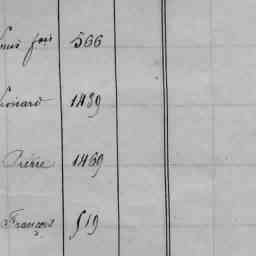 Louis fois 566
Léonard 1489
Pierre 1469
François 519